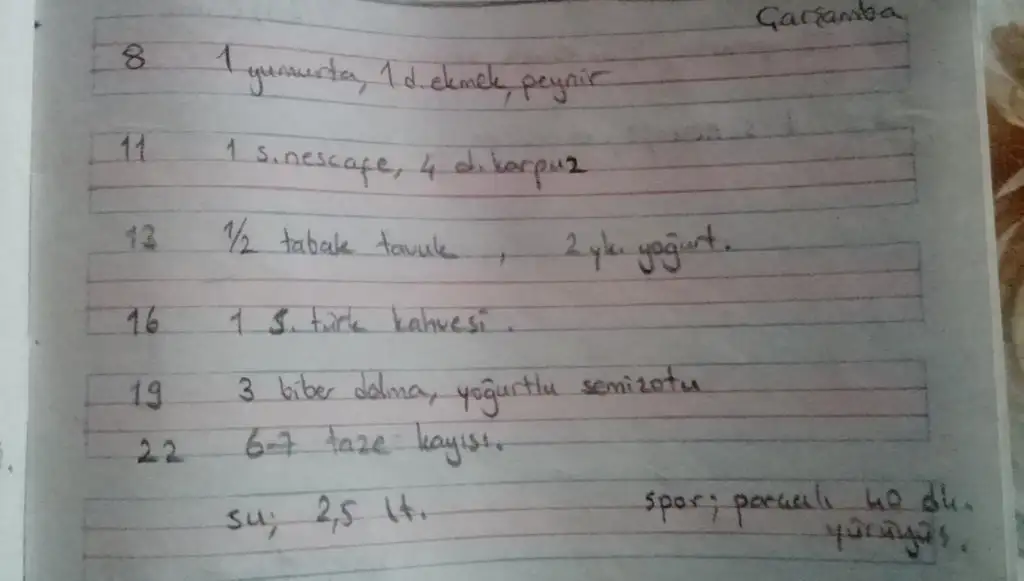 Çarşamba
8 1 yumurta, 1 d. ekmek, peynir
11 1 s. nescafe, 4 d. karpuz
13 1/2 tabak tavuk, 2 yk. yoğurt.
16 1 s. türk kahvesi.
19 3 biber dolma, yoğurtlu semizotu
22 6-7 taze kayısı.
su; 2,5 lt. spor; parçalı 40 dk.
yürüyüş.